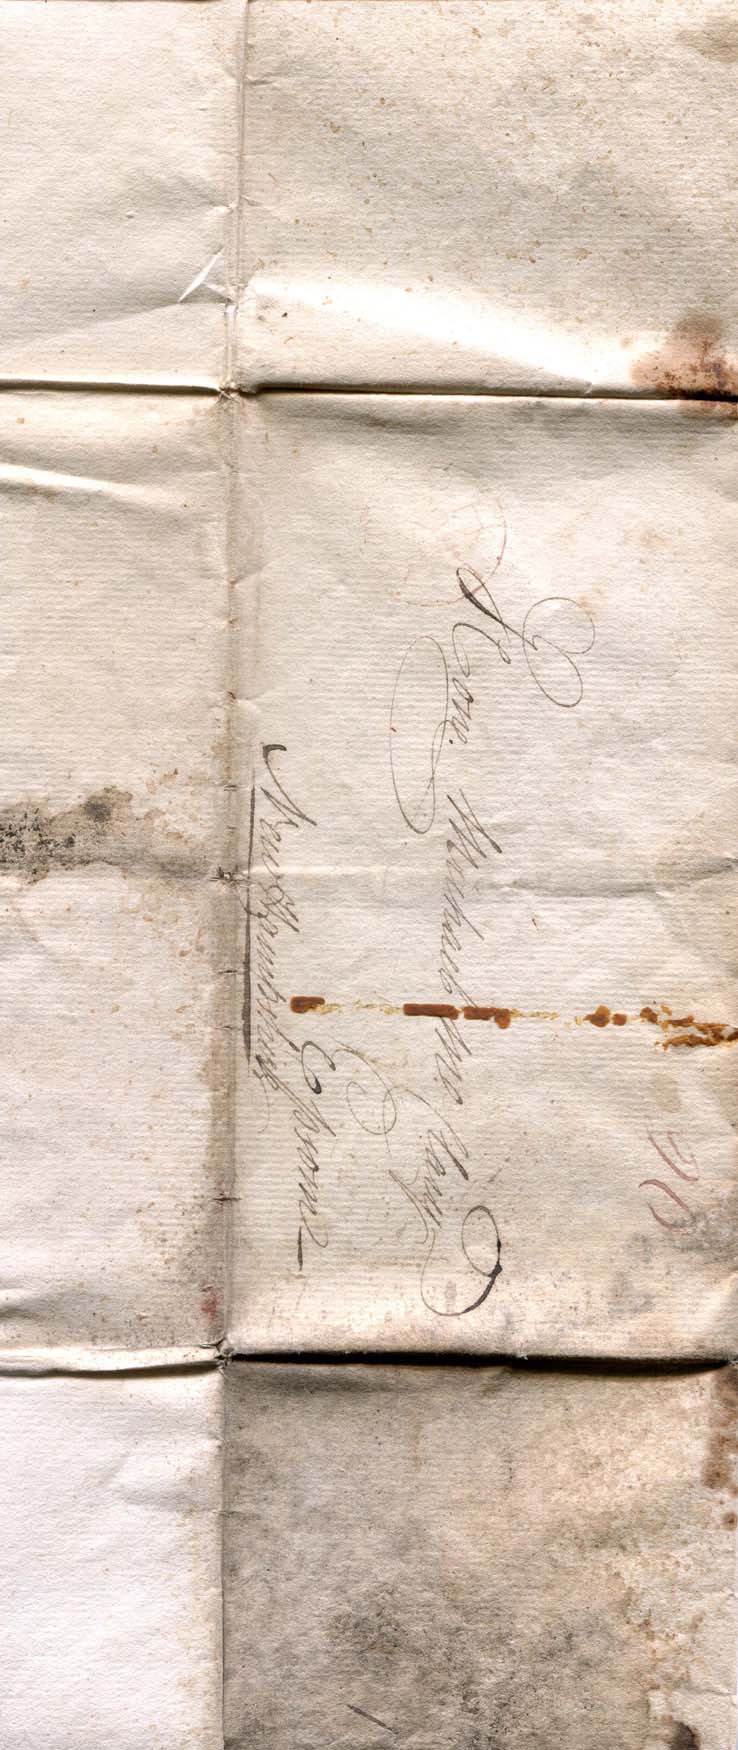 Hon. Michael Mc Clary
Epsom
New Hampshire